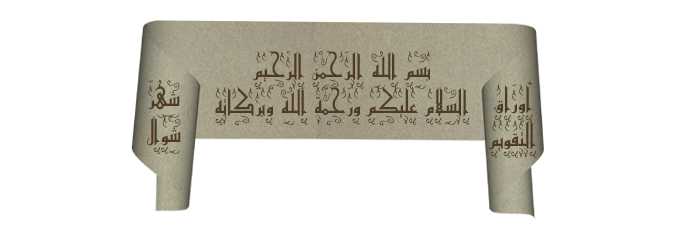 بسم الله الرحمن الرحيم
السلام عليكم ورحمة الله وبركاته
أوراق
التقويم
شهر
شوال